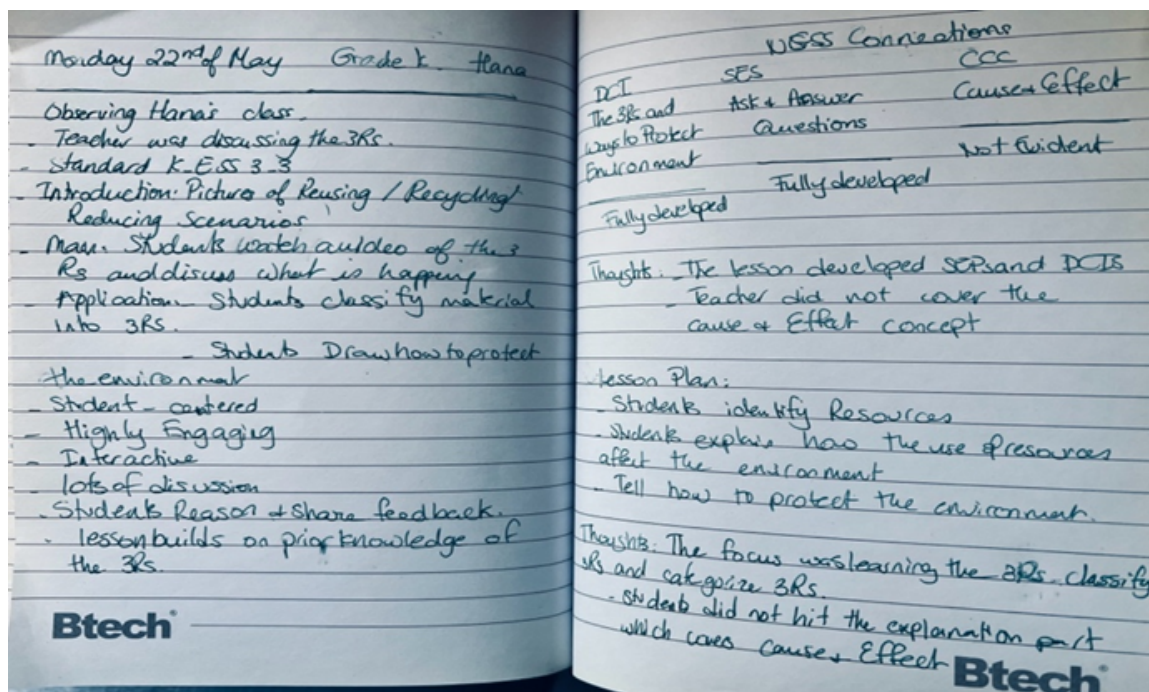 Monday 22nd of May Grade k. Hana
Observing Hana's class.
- Teacher was discussing the 3Rs.
- Standard K-ESS 3-3
- Introduction: Pictures of Reusing / Recycling
Reducing Scenarios
- Main. Students watch a video of the 3
Rs and discuss what is happening
- Application - Students classify material
into 3RS.
- Students Draw how to protect
the environment
- Student-centered
- Highly Engaging
- Interactive
- lots of disussion
- Students Reason & share feedback.
- lesson builds on prior knowledge of
the 3Rs.
Btech
NGSS Connections
DCI SES CCC
The 3Rs and Ask & Answer Cause & Effect
Ways to Protect Questions
Environment Not Evident
Fully developed Fully developed
Thoughts: - The lesson developed SEPs and DCIs
- Teacher did not cover the
cause & Effect concept
lesson Plan:
- Students identify Resources
- Students explain how the use of resources
affect the environment
- Tell how to protect the environment.
Thoughts: The focus was learning the 3Rs classify
3Rs and categorize 3Rs.
- students did not hit the explanation part
which covers cause & Effect
Btech